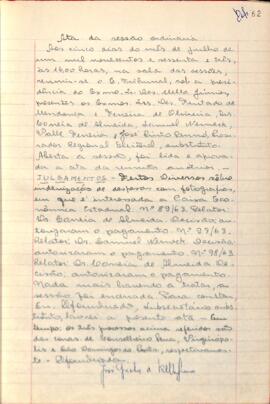 62
Ata da sessão ordinaria
Aos cinco dias do mês de Julho de
um mil novecentos e sessenta e três,
às 14.00 horas, na sala das sessões,
reuniu-se o E. Tribunal, sob a presi-
dência do Exmo. Sr. Des. Mello Júnior,
presentes os Exmos. Srs. Des. Furtado de
Mendonça e Ferreira de Oliveira, Drs.
Corrêia de Almeida, Samuel Werneck,
Valle Ferreira, José Pinto Renno, Procu-
rador Regional Eleitoral, substituto.
Aberta a sessão, foi lida e aprova-
da a ata da reunião anterior. -
JULGAMENTOS - Feitos Diversos sôbre
indenização de despesas com fotografias,
em que é interessada a Caixa Eco-
nômica Estadual. Nº 89/63. Relator:
Dr. Corrêia de Almeida. Decisão: au-
torizaram o pagamento. Nº 97/63.
Relator: Dr. Samuel Werneck. Decisão:
autorizaram o pagamento. Nº 98/63.
Relator: Dr. Corrêia de Almeida. De-
cisão: autorizaram o pagamento.
Nada mais havendo a tratar, a
sessão foi encerrada. Para constar
Eu, secretário subs-
tituto, lavrei a presente ata. - Em
tempo: os três processos acima referidos são
das zonas de Conselheiro Pena, Virginopo-
lis e São Domingos do Prata, respectivamen-
te.